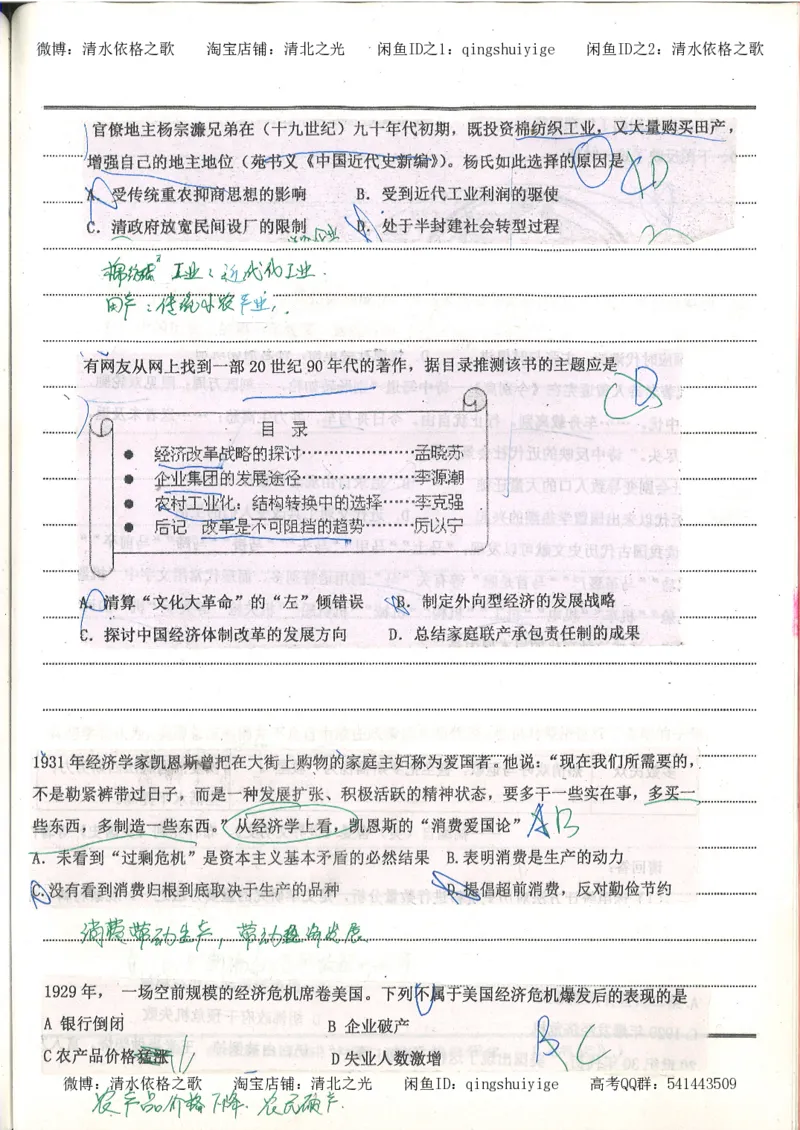 微博：清水依格之歌 淘宝店铺：清北之光 闲鱼ID之1：qingshuiyige 闲鱼ID之2：清水依格之歌
官僚地主杨宗濂兄弟在（十九世纪）九十年代初期，既投资棉纺织工业，又大量购买田产，
增强自己的地主地位（苑书义《中国近代史新编》）。杨氏如此选择的原因是 D
A．受传统重农抑商思想的影响 B．受到近代工业利润的驱使
C．清政府放宽民间设厂的限制 D．处于半封建社会转型过程
棉纺织工业：近代化工业．
田产：传统小农产业．
有网友从网上找到一部 20 世纪 90 年代的著作，据目录推测该书的主题应是
目 录
● 经济改革战略的探讨………………孟晓苏
● 企业集团的发展途径………………李源潮
● 农村工业化：结构转换中的选择……李克强
● 后记 改革是不可阻挡的趋势………厉以宁
A．清算“文化大革命”的“左”倾错误 B．制定外向型经济的发展战略
C．探讨中国经济体制改革的发展方向 D．总结家庭联产承包责任制的成果
1931 年经济学家凯恩斯曾把在大街上购物的家庭主妇称为爱国者。他说：“现在我们所需要的，
不是勒紧裤带过日子，而是一种发展扩张、积极活跃的精神状态，要多干一些实在事，多买一
些东西，多制造一些东西。”从经济学上看，凯恩斯的“消费爱国论” A B
A．未看到“过剩危机”是资本主义基本矛盾的必然结果 B.表明消费是生产的动力
C.没有看到消费归根到底取决于生产的品种 D.提倡超前消费，反对勤俭节约
消费带动生产，带动经济发展
1929 年， 一场空前规模的经济危机席卷美国。下列不属于美国经济危机爆发后的表现的是
A 银行倒闭 B 企业破产 B C
C 农产品价格猛涨 D 失业人数激增
微博：清水依格之歌 淘宝店铺：清北之光 闲鱼ID：qingshuiyige 高考QQ群：541443509
农产品价格下降．农民破产．